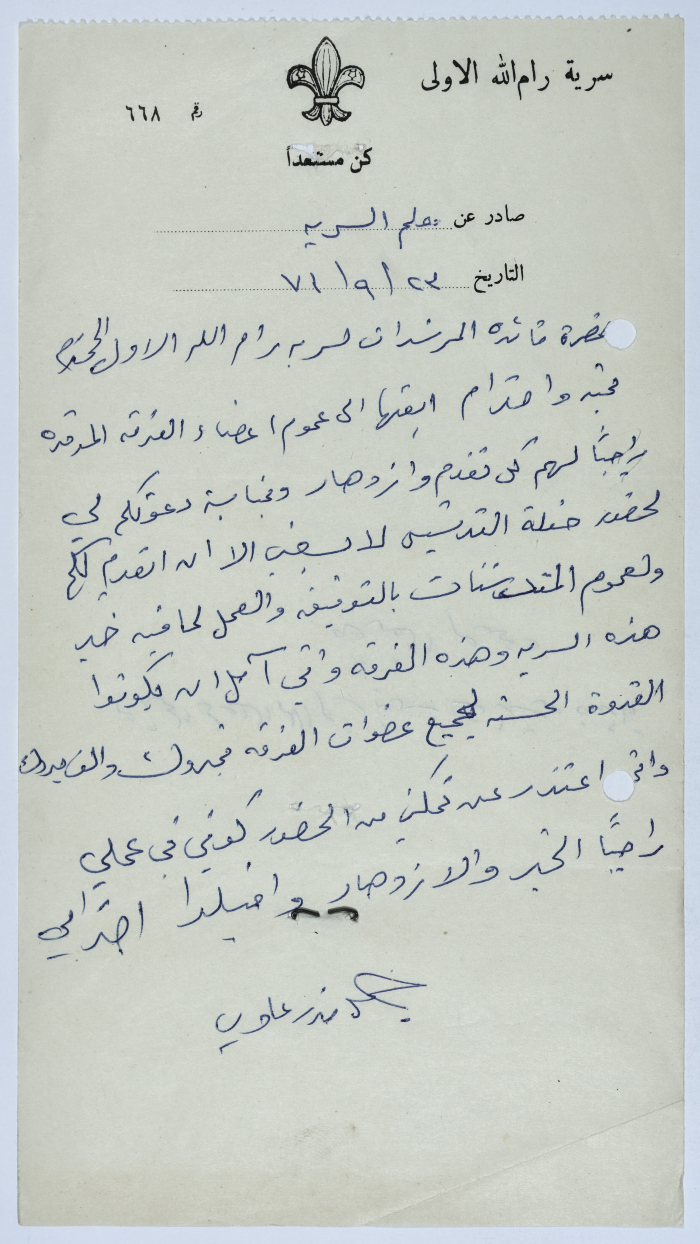 سرية رام الله الاولى
رقم ٦٦٨
كن مستعداً
صادر عن معلم السريه
التاريخ ٢٣ / ٩ / ٧١
حضرة قائده المرشدات لسريه رام الله الاولى
محبه واحترام ابعثها الى عموم اعضاء الفرقه الموقره
راجياً لهم كل تقدم وازدهار وبمناسبة دعوتكم لي
لحضور حفلة التدشين لا يسعني الا ان اتقدم لكم
ولعموم المتدشنات بالتوفيق والعمل لما فيه خير
هذه السريه وهذه الفرقه واني آمل ان يكونوا
القدوة الحسنه لجميع عضوات الفرقه فمبروك والف مبروك
واني اعتذر عن تمكني من الحضور كوني في عملي
راجياً الخير والازدهار واقبلوا احترامي